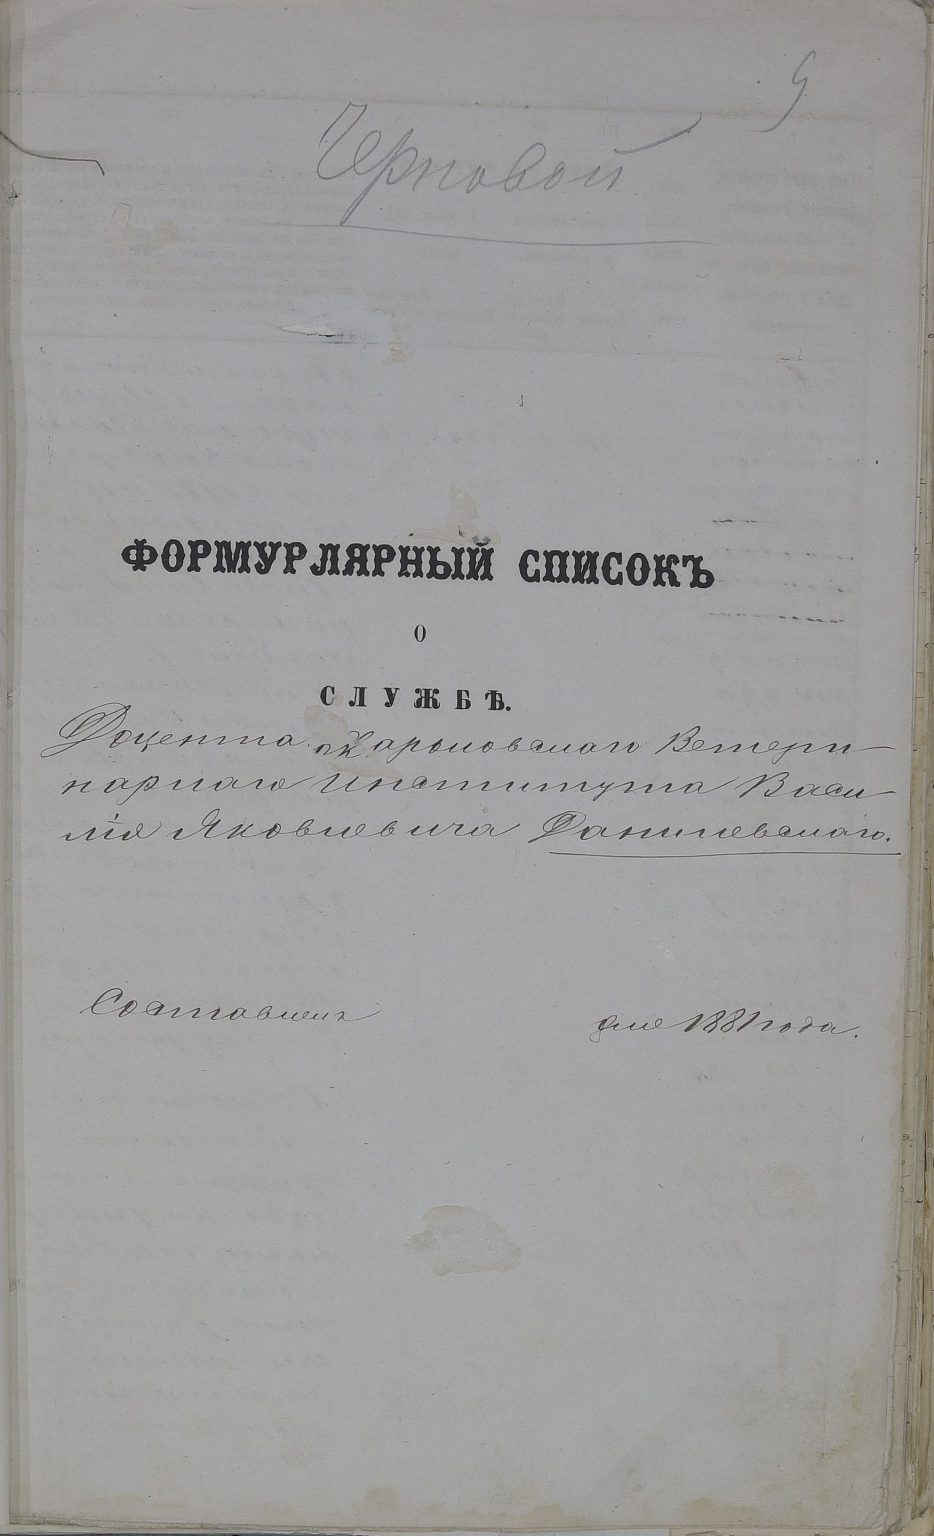 9
Черновой
ФОРМУРЛЯРНЫЙ СПИСОКЪ
О
СЛУЖБѢ.
Доцента Харьковскаго Ветери-
нарнаго Института Васи-
лія Яковлевича Данилевскаго.
Составленъ дня 1881 года.